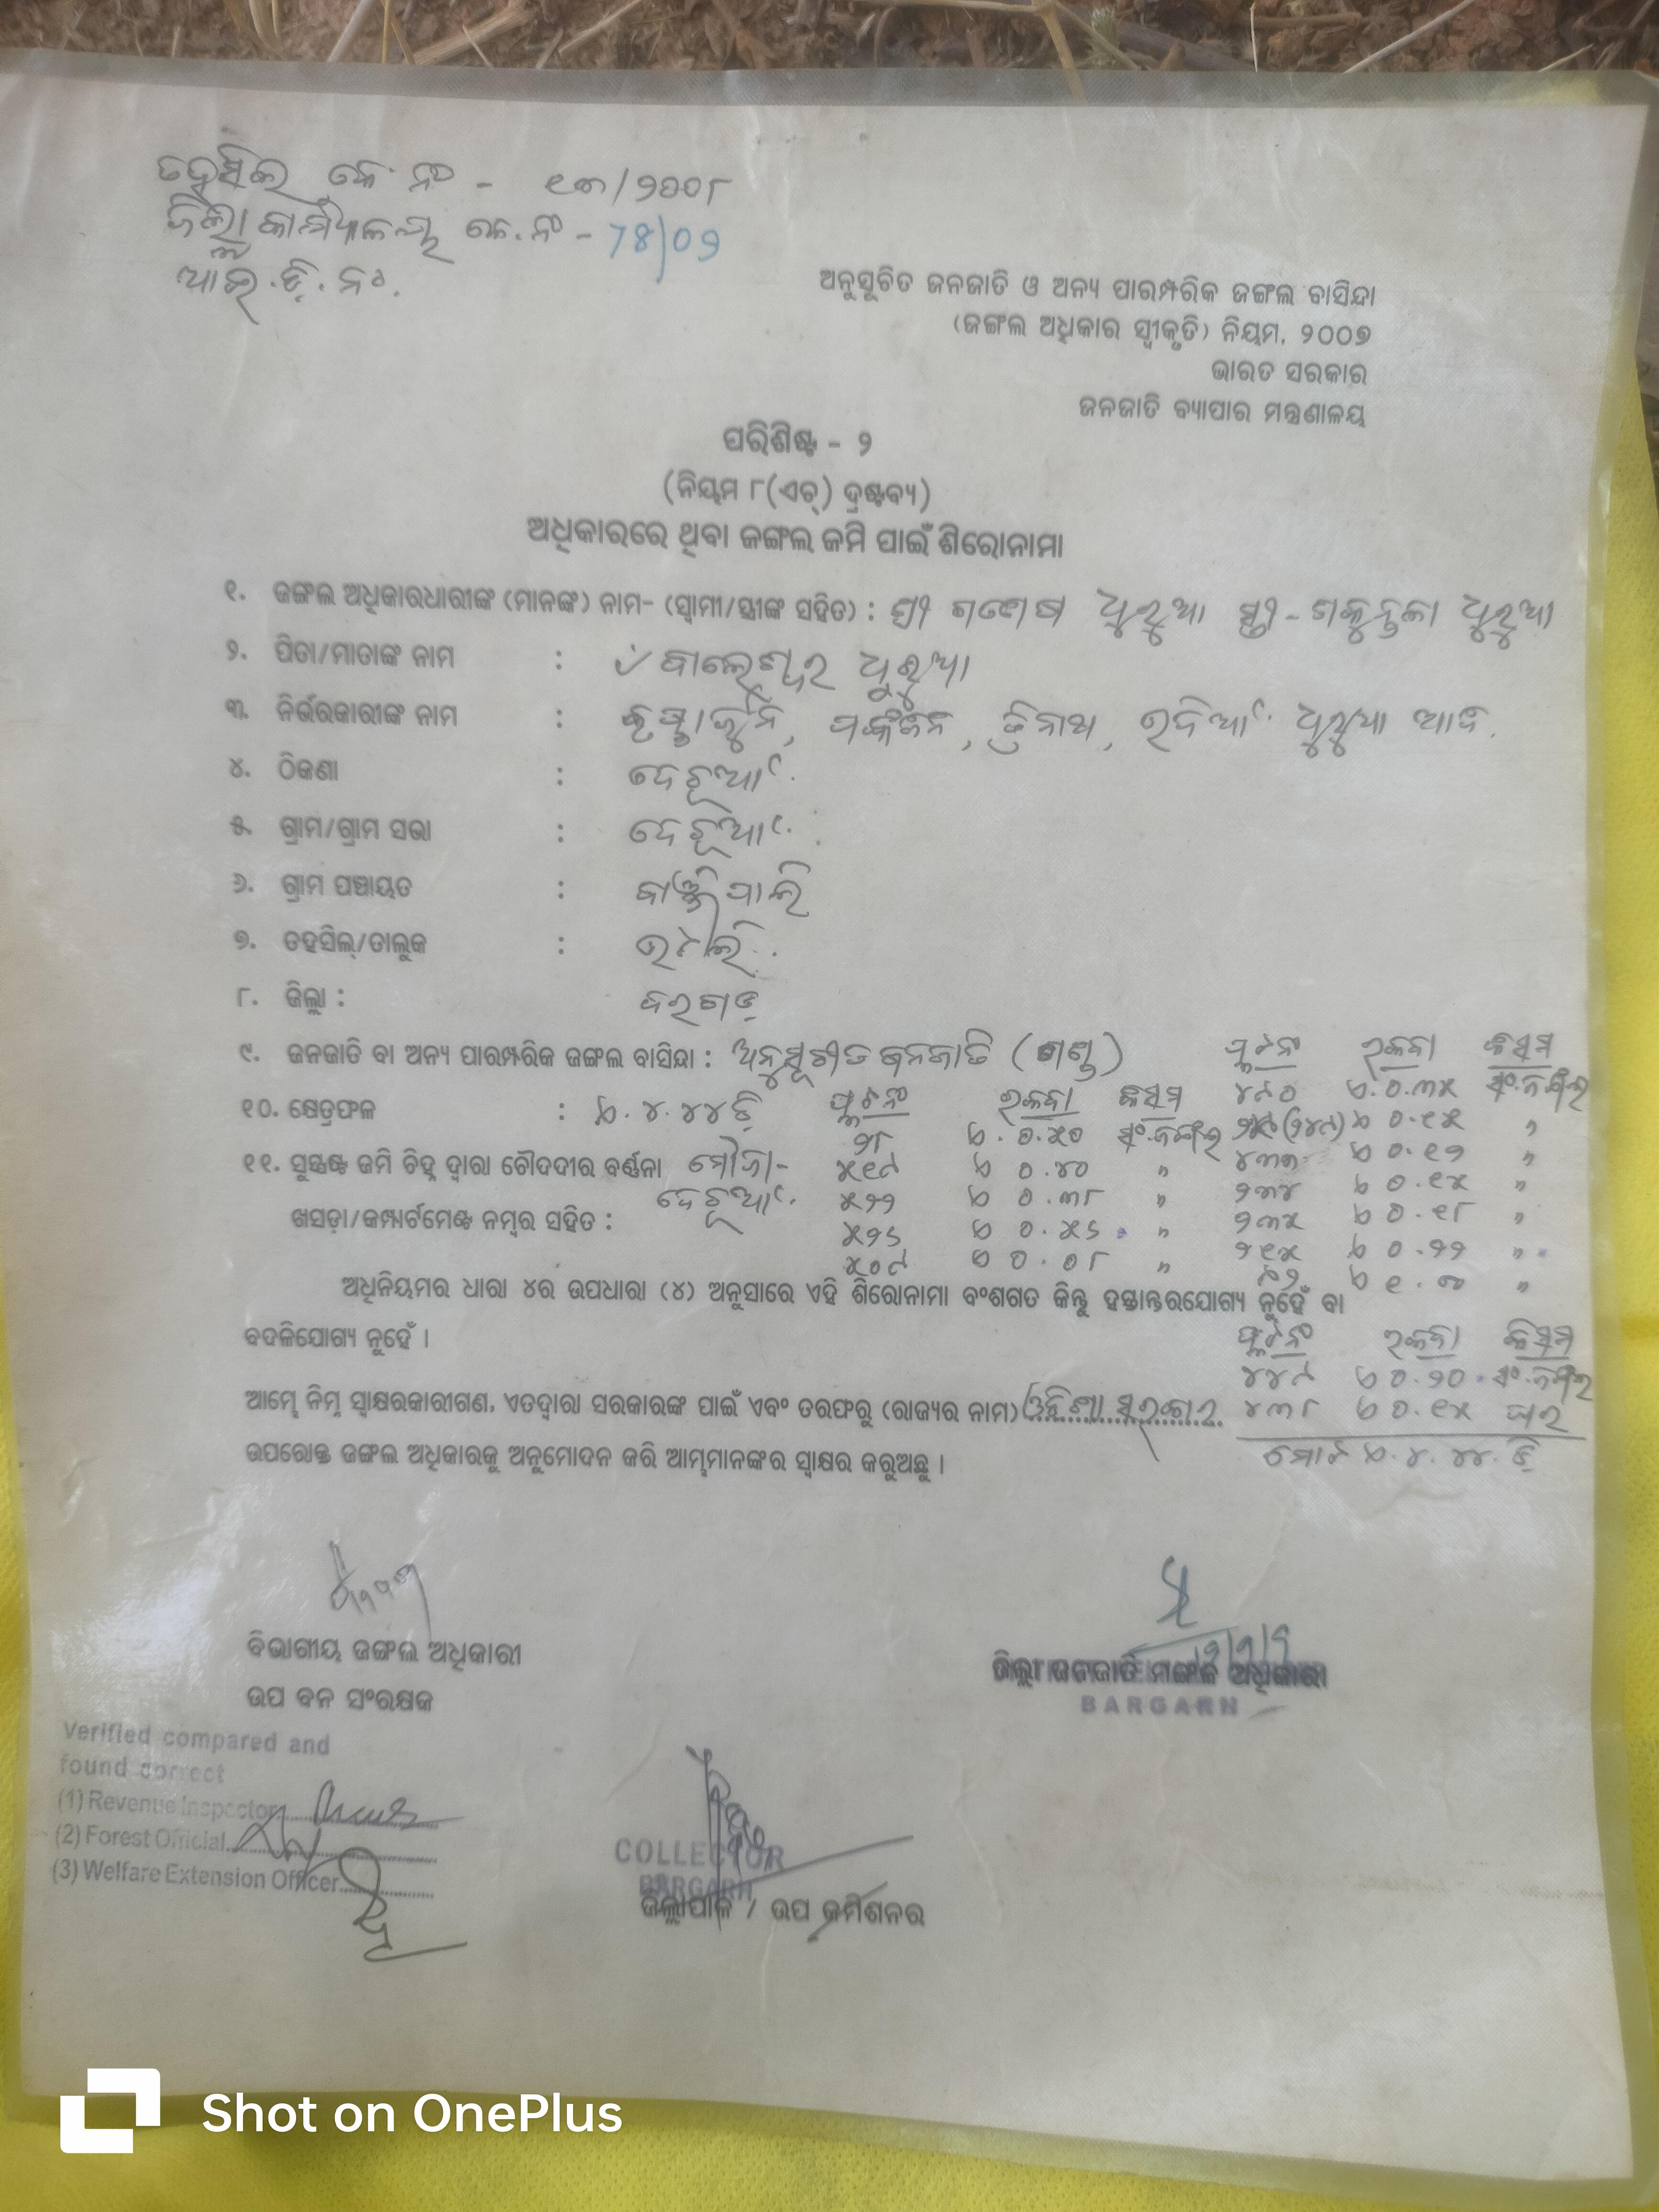 ତହସିଲ କେ ନଂ - ୧୩/୨୦୦୮
ଜିଲ୍ଲା କାର୍ଯ୍ୟାଳୟ କେ.ନଂ - 78/09
ଆଇ.ଡ଼ି. ନଂ.
ଅନୁସୂଚିତ ଜନଜାତି ଓ ଅନ୍ୟ ପାରମ୍ପରିକ ଜଙ୍ଗଲ ବାସିନ୍ଦା
(ଜଙ୍ଗଲ ଅଧିକାର ସ୍ୱୀକୃତି) ନିୟମ, ୨୦୦୭
ଭାରତ ସରକାର
ଜନଜାତି ବ୍ୟାପାର ମନ୍ତ୍ରଣାଳୟ
ପରିଶିଷ୍ଟ - ୨
(ନିୟମ ୮(ଏଚ୍) ଦ୍ରଷ୍ଟବ୍ୟ)
ଅଧିକାରରେ ଥିବା ଜଙ୍ଗଲ ଜମି ପାଇଁ ଶିରୋନାମା
୧. ଜଙ୍ଗଲ ଅଧିକାରଧାରୀଙ୍କ (ମାନଙ୍କ) ନାମ- (ସ୍ୱାମୀ/ସ୍ତ୍ରୀଙ୍କ ସହିତ) : ଶ୍ରୀ ଗଣେଷ ଧୁରୁଆ ସ୍ତ୍ରୀ - ଶକୁନ୍ତଳା ଧୁରୁଆ
୨. ପିତା/ମାତାଙ୍କ ନାମ : ବାଲେଶ୍ୱର ଧୁରୁଆ
୩. ନିର୍ଭରକାରୀଙ୍କ ନାମ : କୃଷ୍ଣାର୍ଜୁନ, ପଙ୍କଜନ, ତ୍ରିନାଥ, ଧୁରୁଆ
୪. ଠିକଣା : ଦେଚୂଆଁ.
୫. ଗ୍ରାମ/ଗ୍ରାମ ସଭା : ଦେଚୂଆଁ.
୬. ଗ୍ରାମ ପଞ୍ଚାୟତ : ବାଞ୍ଜିପାଲି
୭. ତହସିଲ୍/ତାଲୁକ : ଭଟଲି.
୮. ଜିଲ୍ଲା : ବରଗଡ଼
୯. ଜନଜାତି ବା ଅନ୍ୟ ପାରମ୍ପରିକ ଜଙ୍ଗଲ ବାସିନ୍ଦା : ଅନୁସୂଚୀତ ଜନଜାତି (ଗଣ୍ଡ) ପ୍ଲଟନଂ ରକବା କିସମ
୪୯୦ ଏ.୦.୩୫ ସଂ.ଜଙ୍ଗଲ
୧୦. କ୍ଷେତ୍ରଫଳ : ଏ.୪.୪୪ଡ଼ି ପ୍ଲଟନଂ ରକବା କିସମ
୨୮ ଏ.୦.୫୦ ସଂ.ଜଙ୍ଗଲ ଏ ୦.୧୫ "
୧୧. ସୁସ୍ପଷ୍ଟ ଜମି ଚିହ୍ନ ଦ୍ୱାରା ଚୌଦଦୀର ବର୍ଣ୍ଣନା ମୌଜା- ୫୧୯ ଏ ୦.୪୦ " ୪୩୩ ଏ ୦.୧୨ "
ଦେଚୂଆଁ. ୫୨୨ ଏ ୦.୩୮ " ୨୩୪ ଏ ୦.୧୫ "
ଖସଡ଼ା/କମ୍ପାର୍ଟମେଣ୍ଟ ନମ୍ବର ସହିତ : ୫୨୬ ଏ ୦.୫୬ " ୨୩୫ ଏ ୦.୧୮ "
୫୦୯ ଏ ୦.୦୮ " ୨୧୫ ଏ ୦.୨୨ "
ଏ ୧.୦୦ "
ଅଧିନିୟମର ଧାରା ୪ର ଉପଧାରା (୪) ଅନୁସାରେ ଏହି ଶିରୋନାମା ବଂଶଗତ କିନ୍ତୁ ହସ୍ତାନ୍ତରଯୋଗ୍ୟ ନୁହେଁ ବା
ବଦଳିଯୋଗ୍ୟ ନୁହେଁ ।
ପ୍ଲଟନଂ ରକବା କିସମ
୪୪୯ ଏ ୦.୨୦ ସଂ.ଜଙ୍ଗଲ
ଆମ୍ଭେ ନିମ୍ନ ସ୍ୱାକ୍ଷରକାରୀଗଣ, ଏତଦ୍ୱାରା ସରକାରଙ୍କ ପାଇଁ ଏବଂ ତରଫରୁ (ରାଜ୍ୟର ନାମ) ଓଡ଼ିଶା ସରକାର ୪୩୮ ଏ ୦.୧୫ ଘର
ଉପରୋକ୍ତ ଜଙ୍ଗଲ ଅଧିକାରକୁ ଅନୁମୋଦନ କରି ଆମ୍ଭମାନଙ୍କର ସ୍ୱାକ୍ଷର କରୁଅଛୁ ।
ମୋଟ ଏ.୪.୪୪.ଡ଼ି
ବିଭାଗୀୟ ଜଙ୍ଗଲ ଅଧିକାରୀ
ଉପ ବନ ସଂରକ୍ଷକ
ଜିଲ୍ଲା ଜନଜାତି ମଙ୍ଗଳ ଅଧିକାରୀ
BARGARH
Verified compared and
found correct
(1) Revenue Inspector
(2) Forest Official
(3) Welfare Extension Officer
COLLECTOR
BARGARH
ଜିଲ୍ଲାପାଳ / ଉପ କମିଶନର
Shot on OnePlus